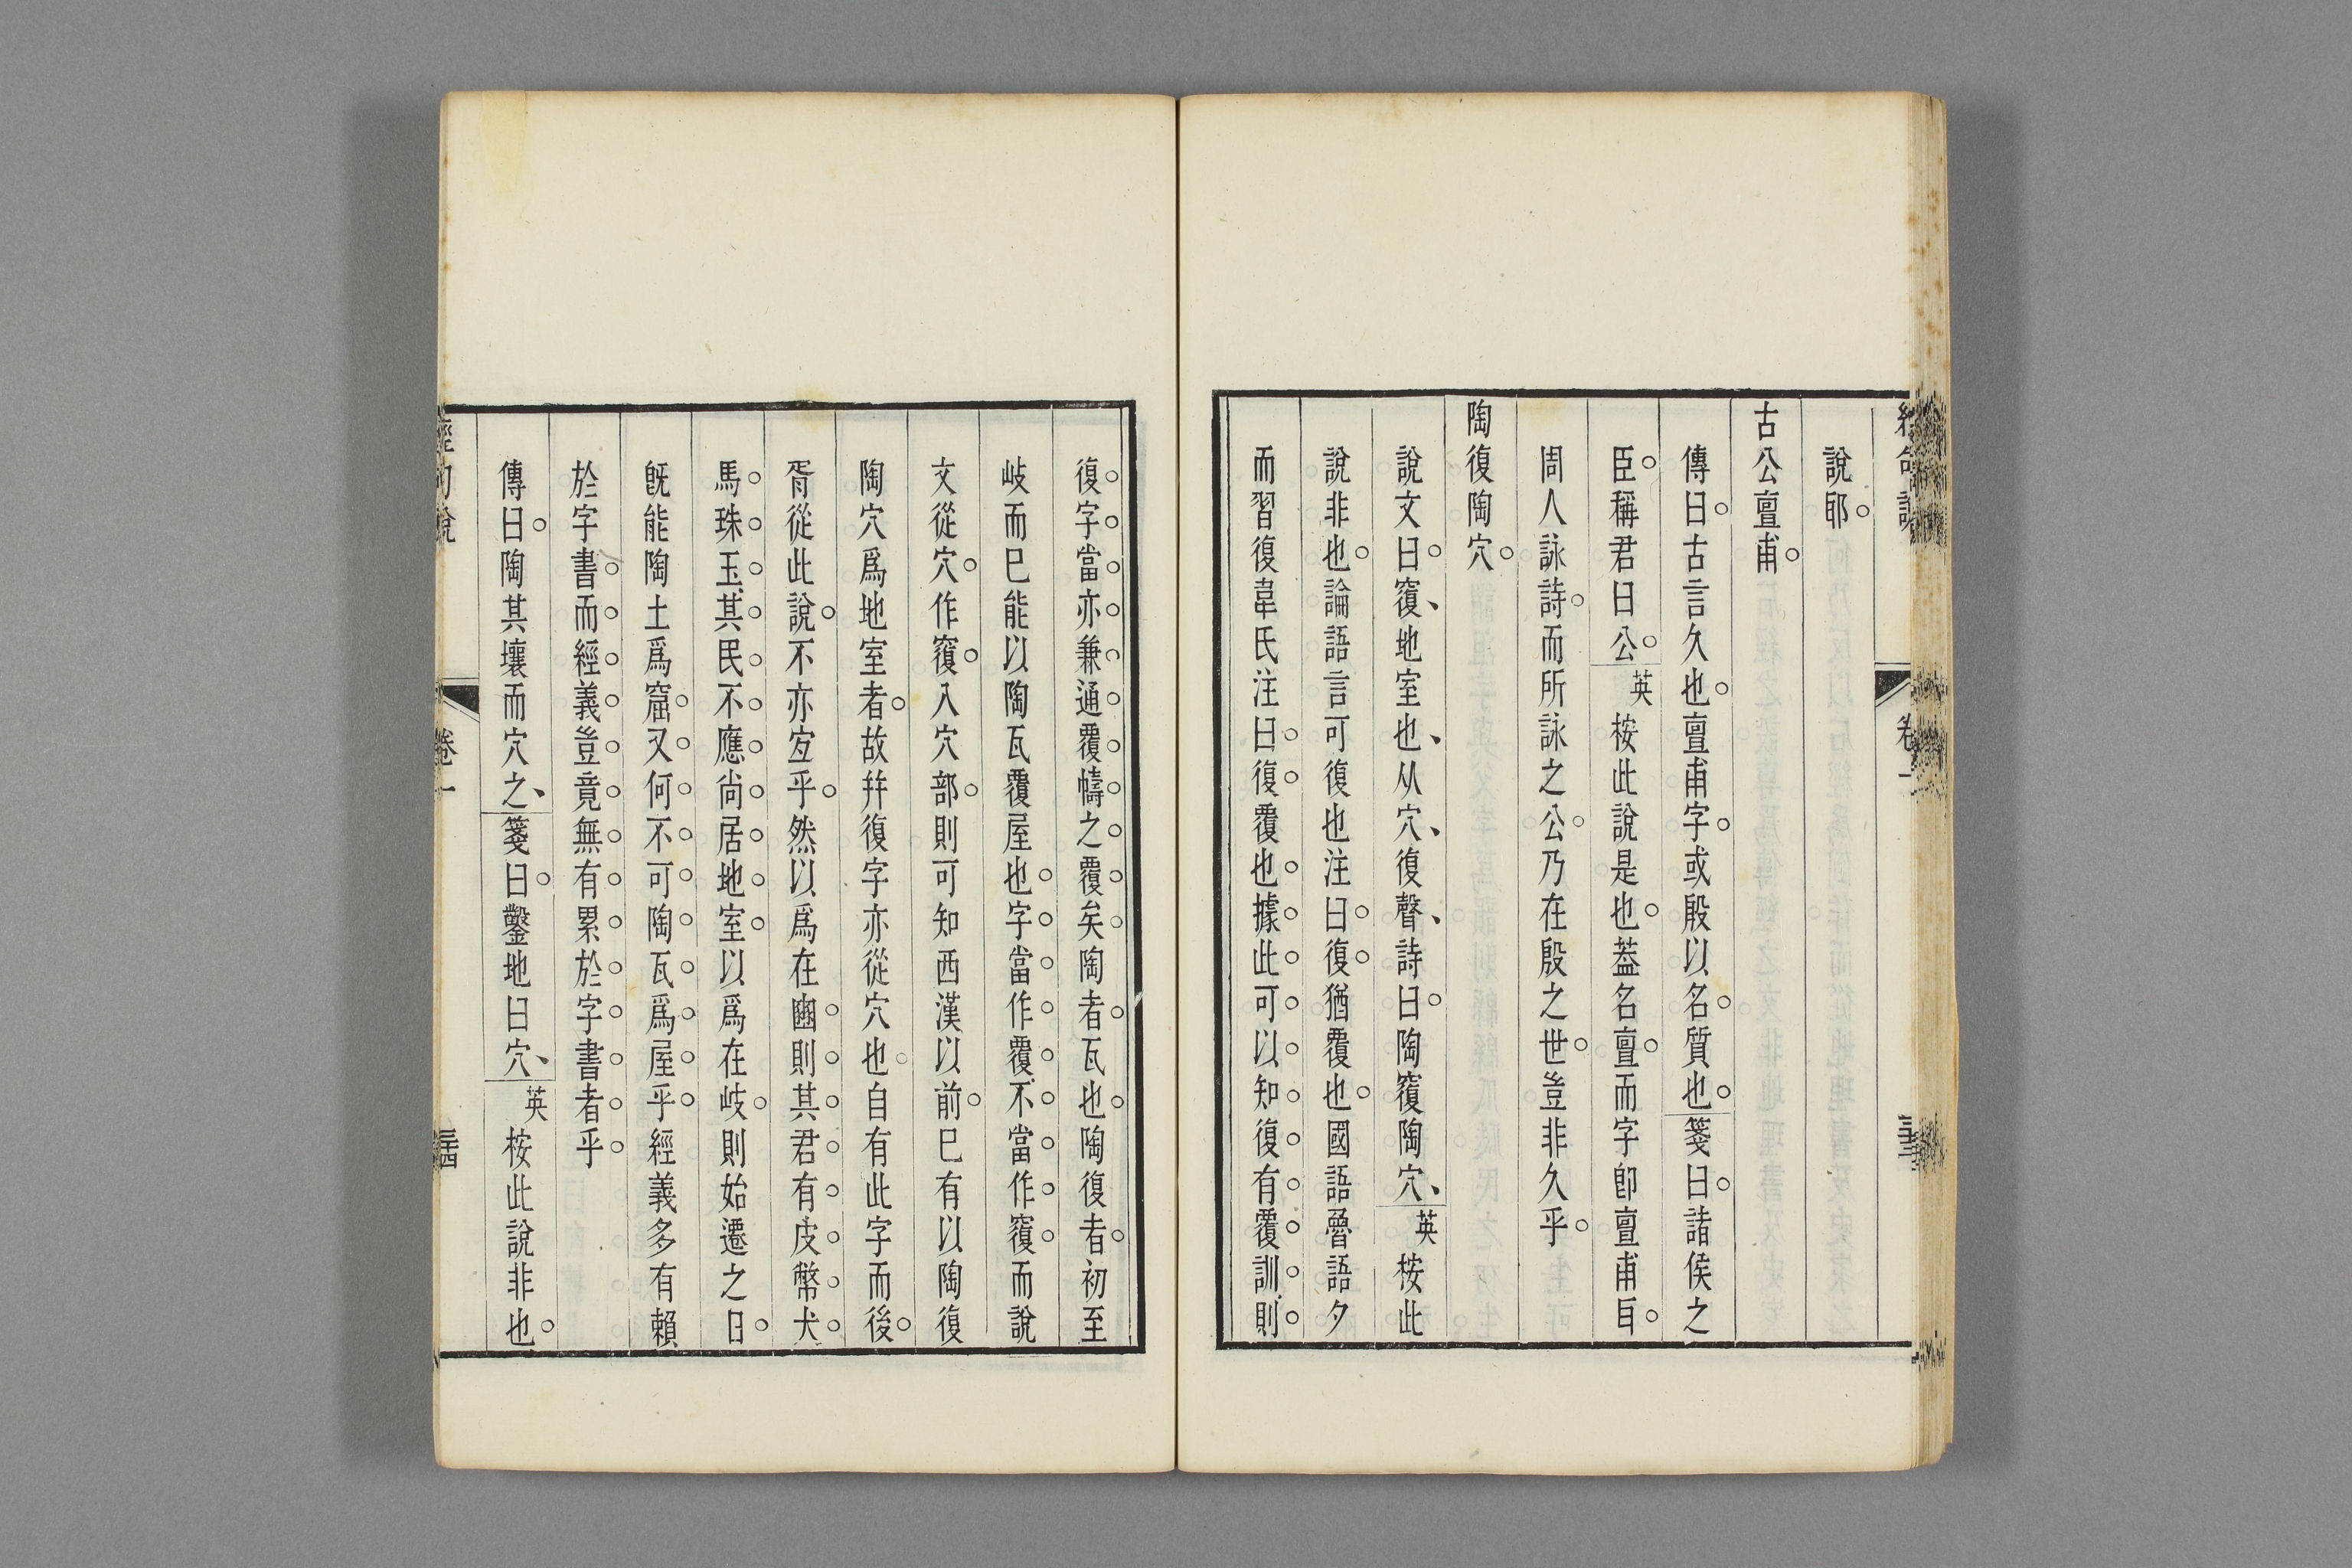 說郈
古公亶甫
傳曰古言久也亶甫字或殷以名質也箋曰諸侯之
臣稱君曰公英按此說是也葢名亶而字卽亶甫㠯
周人詠詩而所詠之公乃在殷之世豈非久乎
陶復陶穴
說文曰㝮地室也从穴復聲詩曰陶㝮陶穴英桉此
說非也論語言可復也注曰復猶覆也國語魯語夕
而習復韋氏注曰復覆也據此可以知復有覆訓則
復字當亦兼通覆幬之覆矣陶者瓦也陶復者初至
岐而巳能以陶瓦覆屋也字當作覆不當作㝮而說
文從穴作㝮入穴部則可知西漢以前巳有以陶復
陶穴爲地室者故幷復字亦從穴也自有此字而後
胥從此說不亦宐乎然以爲在豳則其君有皮幣犬
馬珠玉其民不應尙居地室以爲在岐則始遷之日
旣能陶土爲窟又何不可陶瓦爲屋乎經義多有賴
於字書而經義豈竟無有累於字書者乎
傳曰陶其壤而穴之箋曰鑿地曰穴英桉此說非也
經句說
卷一